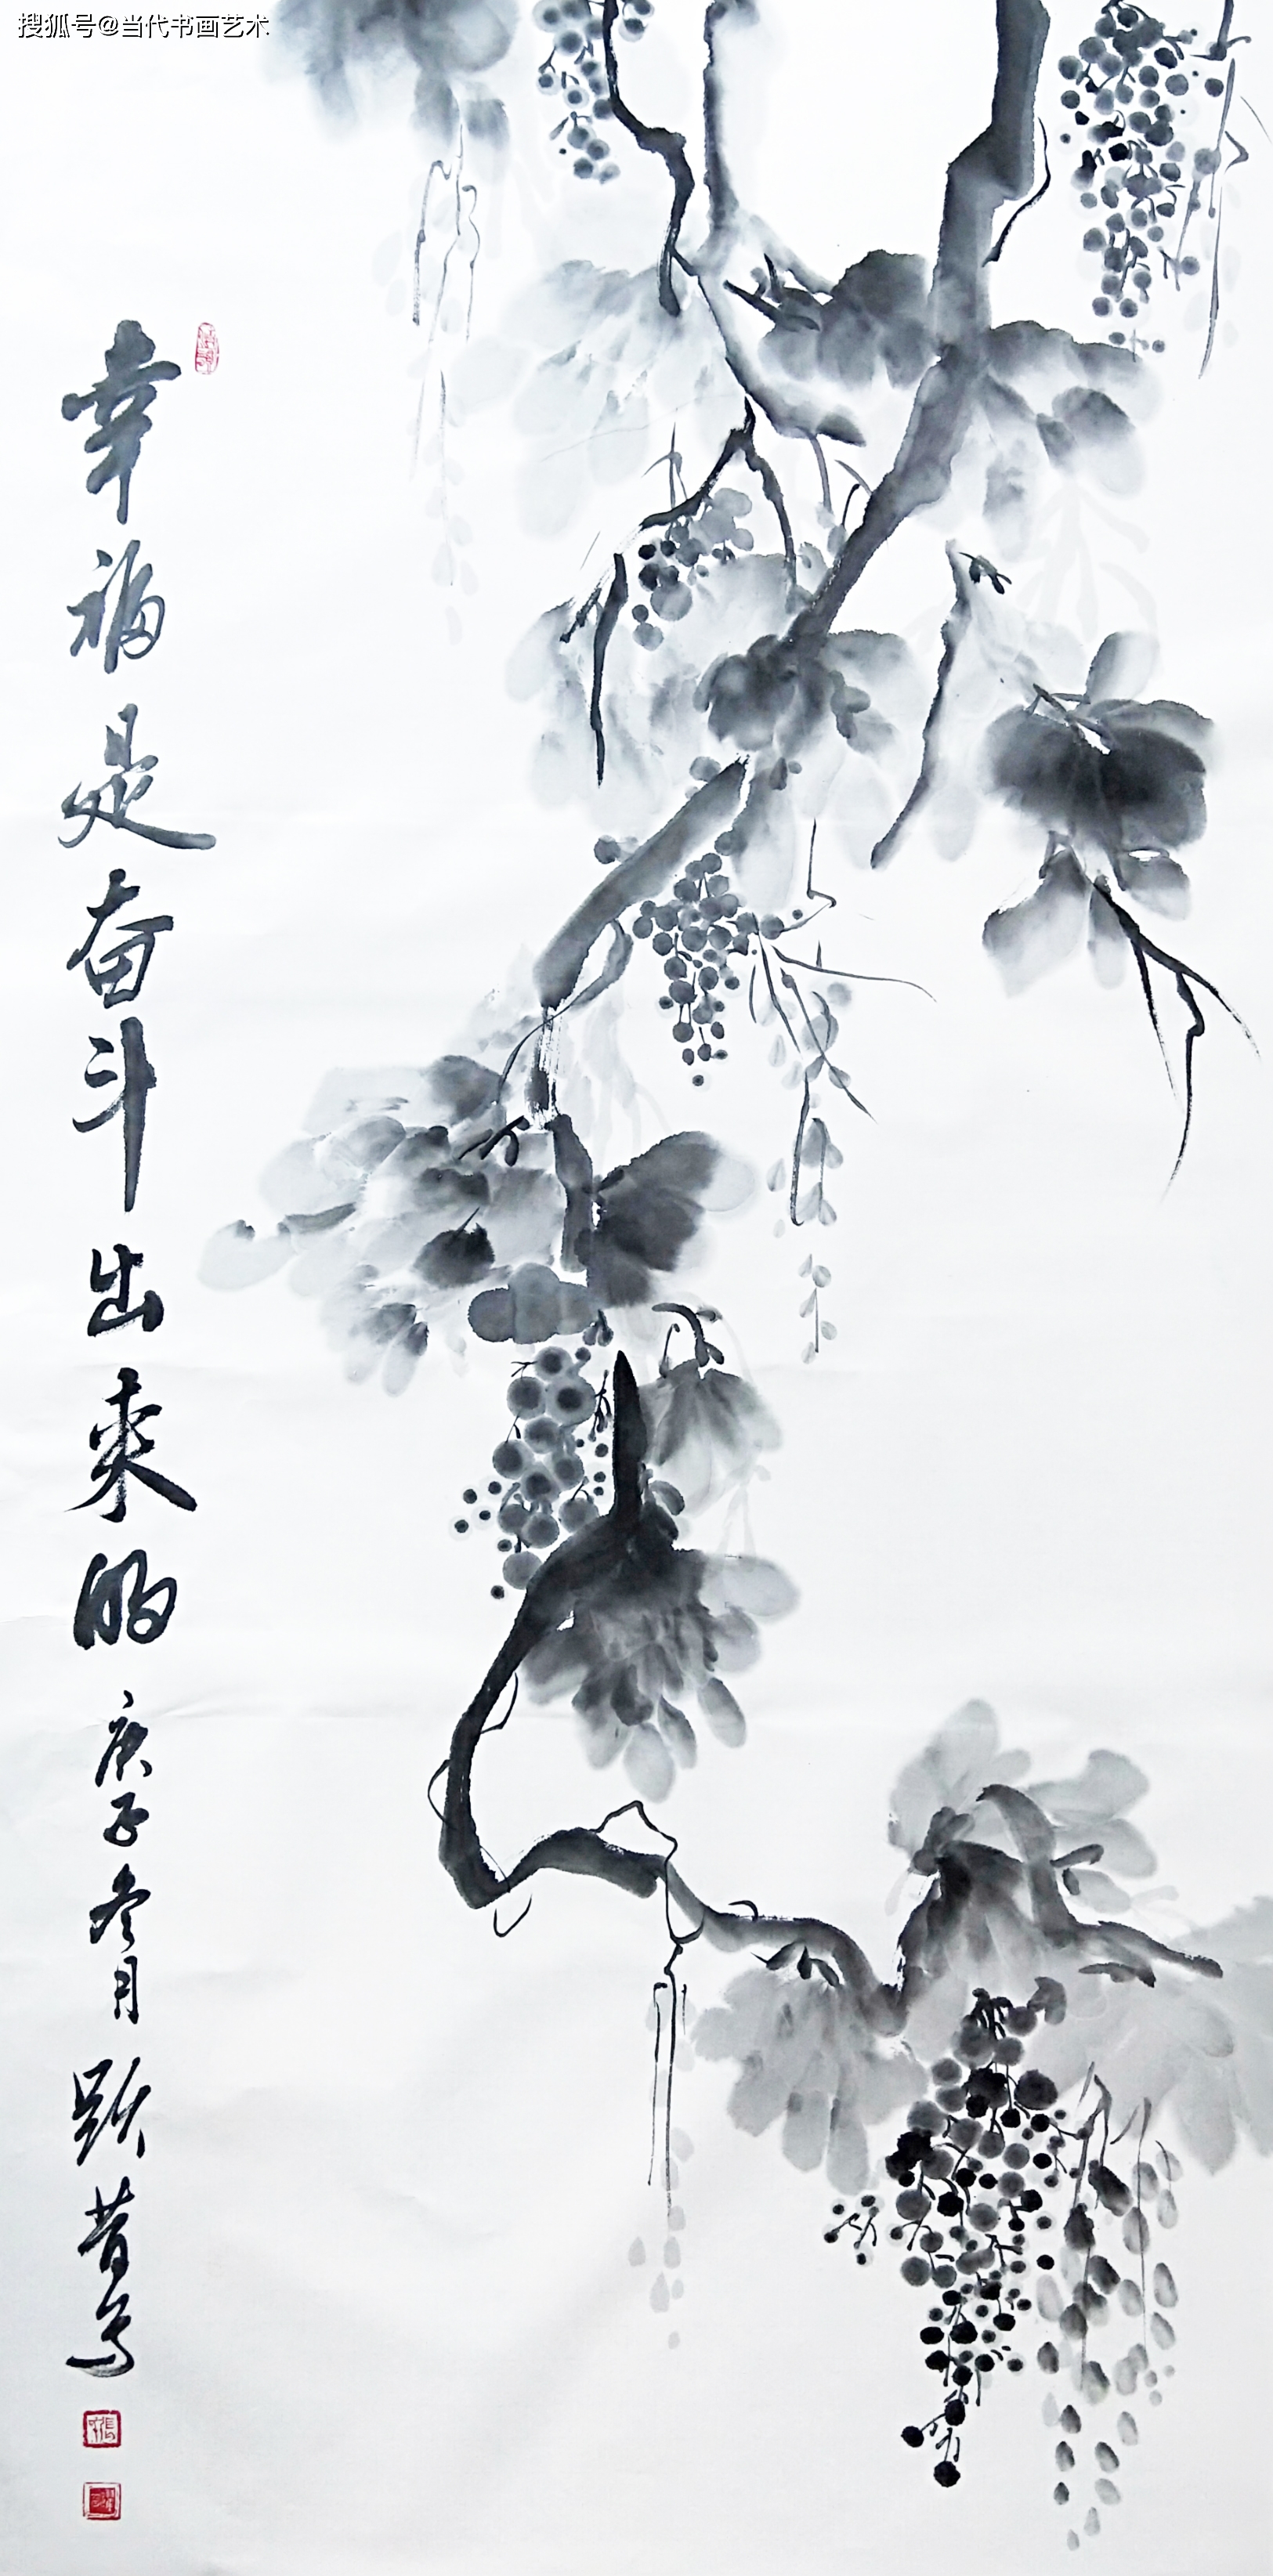 搜狐号@当代书画艺术
幸福是奋斗出来的
庚子冬月